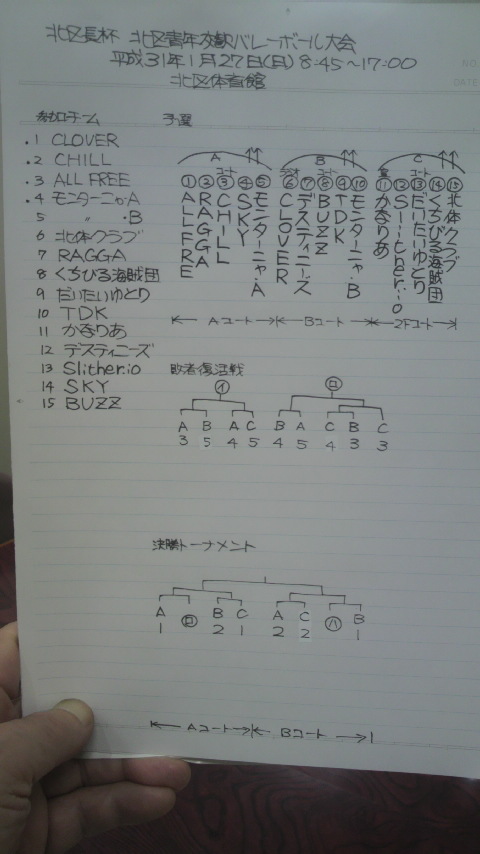 北区長杯 北区青年交歓バレーボール大会
平成31年1月27日(日) 8:45~17:00
北区体育館
NO.
DATE
参加チーム
予選
.1 CLOVER
.2 CHILL
.3 ALL FREE
.4 モンターニャ・A
5 〃 ・B
6 北体クラブ
7 RAGGA
8 くちびる海賊団
9 だいたいゆとり
10 TDK
11 かなりあ
12 デスティニーズ
13 Slither.io
14 SKY
15 BUZZ
A コート
① ALLFREE
② RAGGA
③ CHILL
④ SKY
⑤ モンターニャ・A
B コート
⑥ CLOVER
⑦ デスティニーズ
⑧ BUZZ
⑨ TDK
⑩ モンターニャ・B
C コート
⑪ かなりあ
⑫ Slither.io
⑬ だいたいゆとり
⑭ くちびる海賊団
⑮ 北体クラブ
Aコート Bコート 2Fコート
敗者復活戦
イ ロ
A B A C B A C B C
3 5 4 5 4 5 4 3 3
決勝トーナメント
A ロ B C A C ハ B
1 2 1 2 2 1
Aコート Bコート